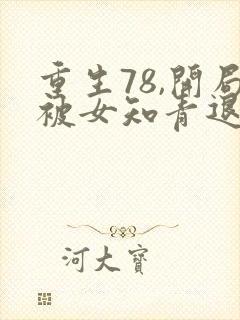 重生78,開局
被女知青退
河大寶